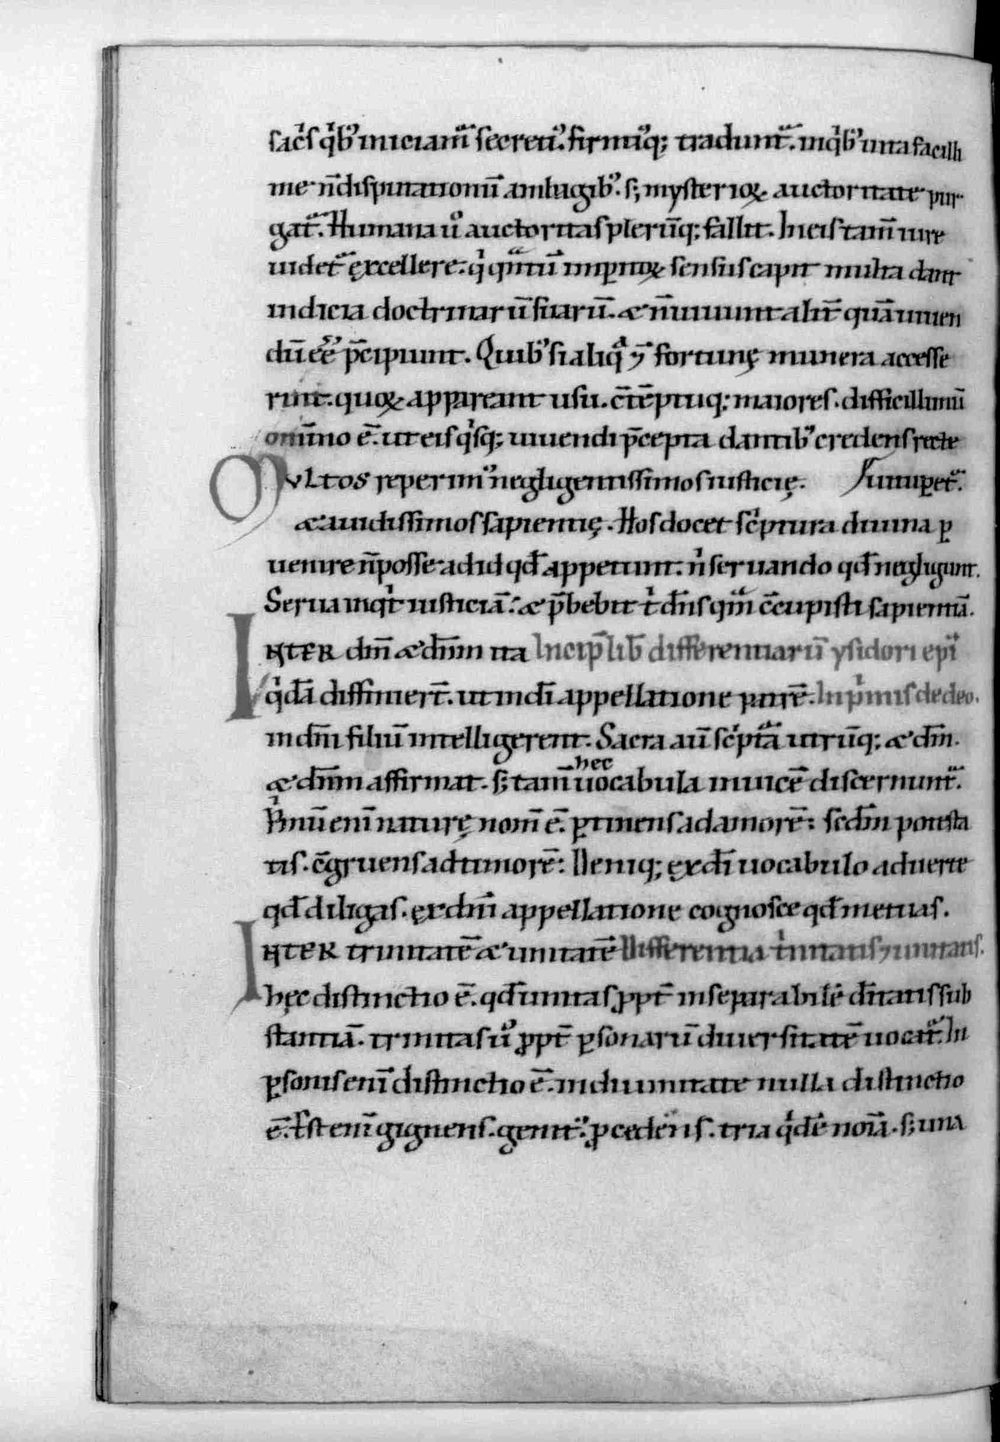 sacˢ qⁱb; iniciam̃ secretiꝰ firmiꝰq; tradunt̃. inqⁱb; uita facilli
me ñ disputationũ ambagib;. s; mysterioꝝ auctoritate pur
gat̃. Humana ů auctoritas plerũq; fallit. In eis tam̃ iure
uidet̃ ęxcellere. qⁱ qͣntũ imp̲itoꝝ sensus capit multa dant
indicia doctrinarũ suarũ. & ñ uiuunt alit̃ quã uiuen
dũ ee̅ p̃cipiunt. Quib; si aliqͣ & fortunę munera accesse
rint. quoꝝ appareant usu. c̃tẽptuq; maiores. difficillimũ
omĩno ẽ. ut eis qͥsq; uiuendi p̃cepta dantib; credens recte
Mvltos reperimꝰ negligentissimos iusticię. uitup̲et̃.
& auidissimos sapientię. Hos docet sc̃ptura diuina p̲
uenire ñ posse ad id qđ appetunt. ñ seruando qđ negligunt.
Serua inqt̃ iusticiã. & p̃bebit t̾ dñs qm̃ c̃cupisti sapientiã.
Inter dm̃ & dñm ita Incip̃ lib̃ differentiarũ ysidori ep̃i
qⁱdã diffinier̃t. ut in dĩ appellatione patrẽ. In pⁱmis de deo.
in dñi filiũ intelligerent. Sacra aũ sc̃pt̃a utrũq; & dm̃.
& dñm affirmat. s; tam̃ hęc uocabula inuicẽ discernunt̃.
Pⁱmũ enĩ naturę nom̃ ẽ. p̲tinens ad amorẽ: scdm̃ potesta
tis. c̃gruens ad timorẽ: Deniq; ęx dĩ uocabulo aduerte
qđ diligas. ęx dñi appellatione cognosce qđ metuas.
Inter trinitatẽ & unitatẽ Differentia tⁱnitatis ⁊ unitatis.
hęc distinctio ẽ. qđ unitas ꝓpt̃ inseparabilẽ dĩtatis sub
stantiã. trinitas ů ꝓpt̃ p̲sonarũ diuersitatẽ uocat̃. In
p̲sonis enĩ distinctio ẽ. in diuinitate nulla distinctio
ẽ. Est enĩ gignens. genitꝰ. ꝓcedens. tria qⁱdẽ noĩa. s; una